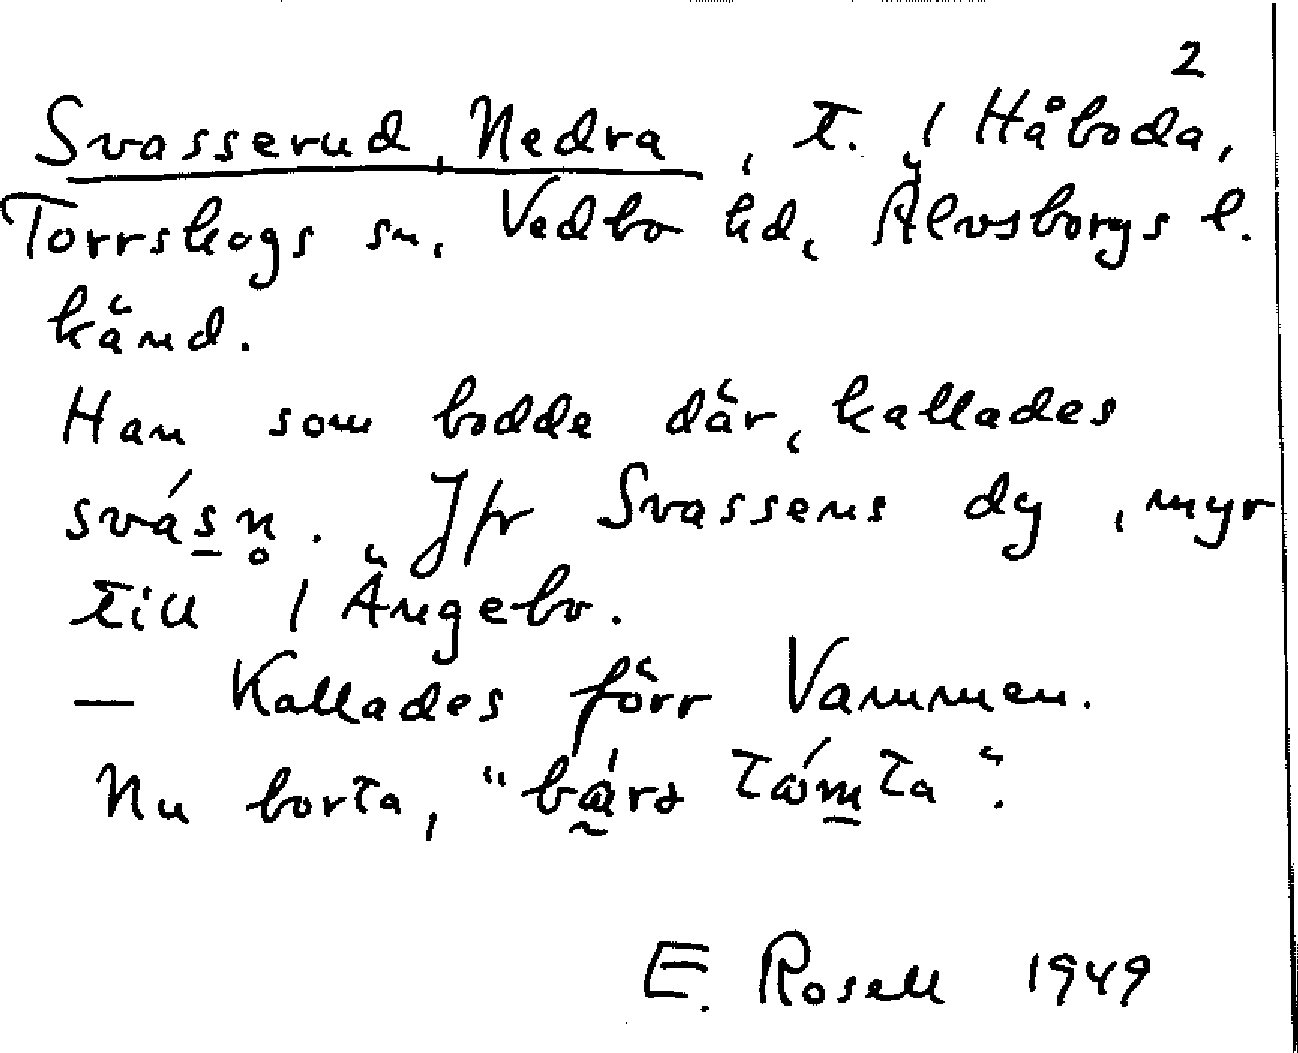 2
Svasserud, Nedra, t. / Håboda,
Torrskogs sn, Vedbo hd, Älvsborgs l.
känd.
Han som bodde där, kallades
svás̲n̥. Jfr Svassens dy, myr
till / Ängebo.
— Kallades förr Vammen.
Nu borta, "bá̰rə tóm̲ta".
E. Rosell 1949